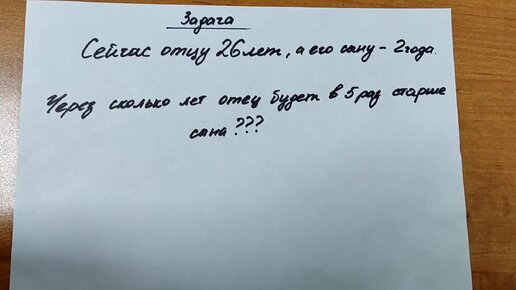 Задача
Сейчас отцу 26 лет, а его сыну - 2 года.
Через сколько лет отец будет в 5 раз старше
сына ???